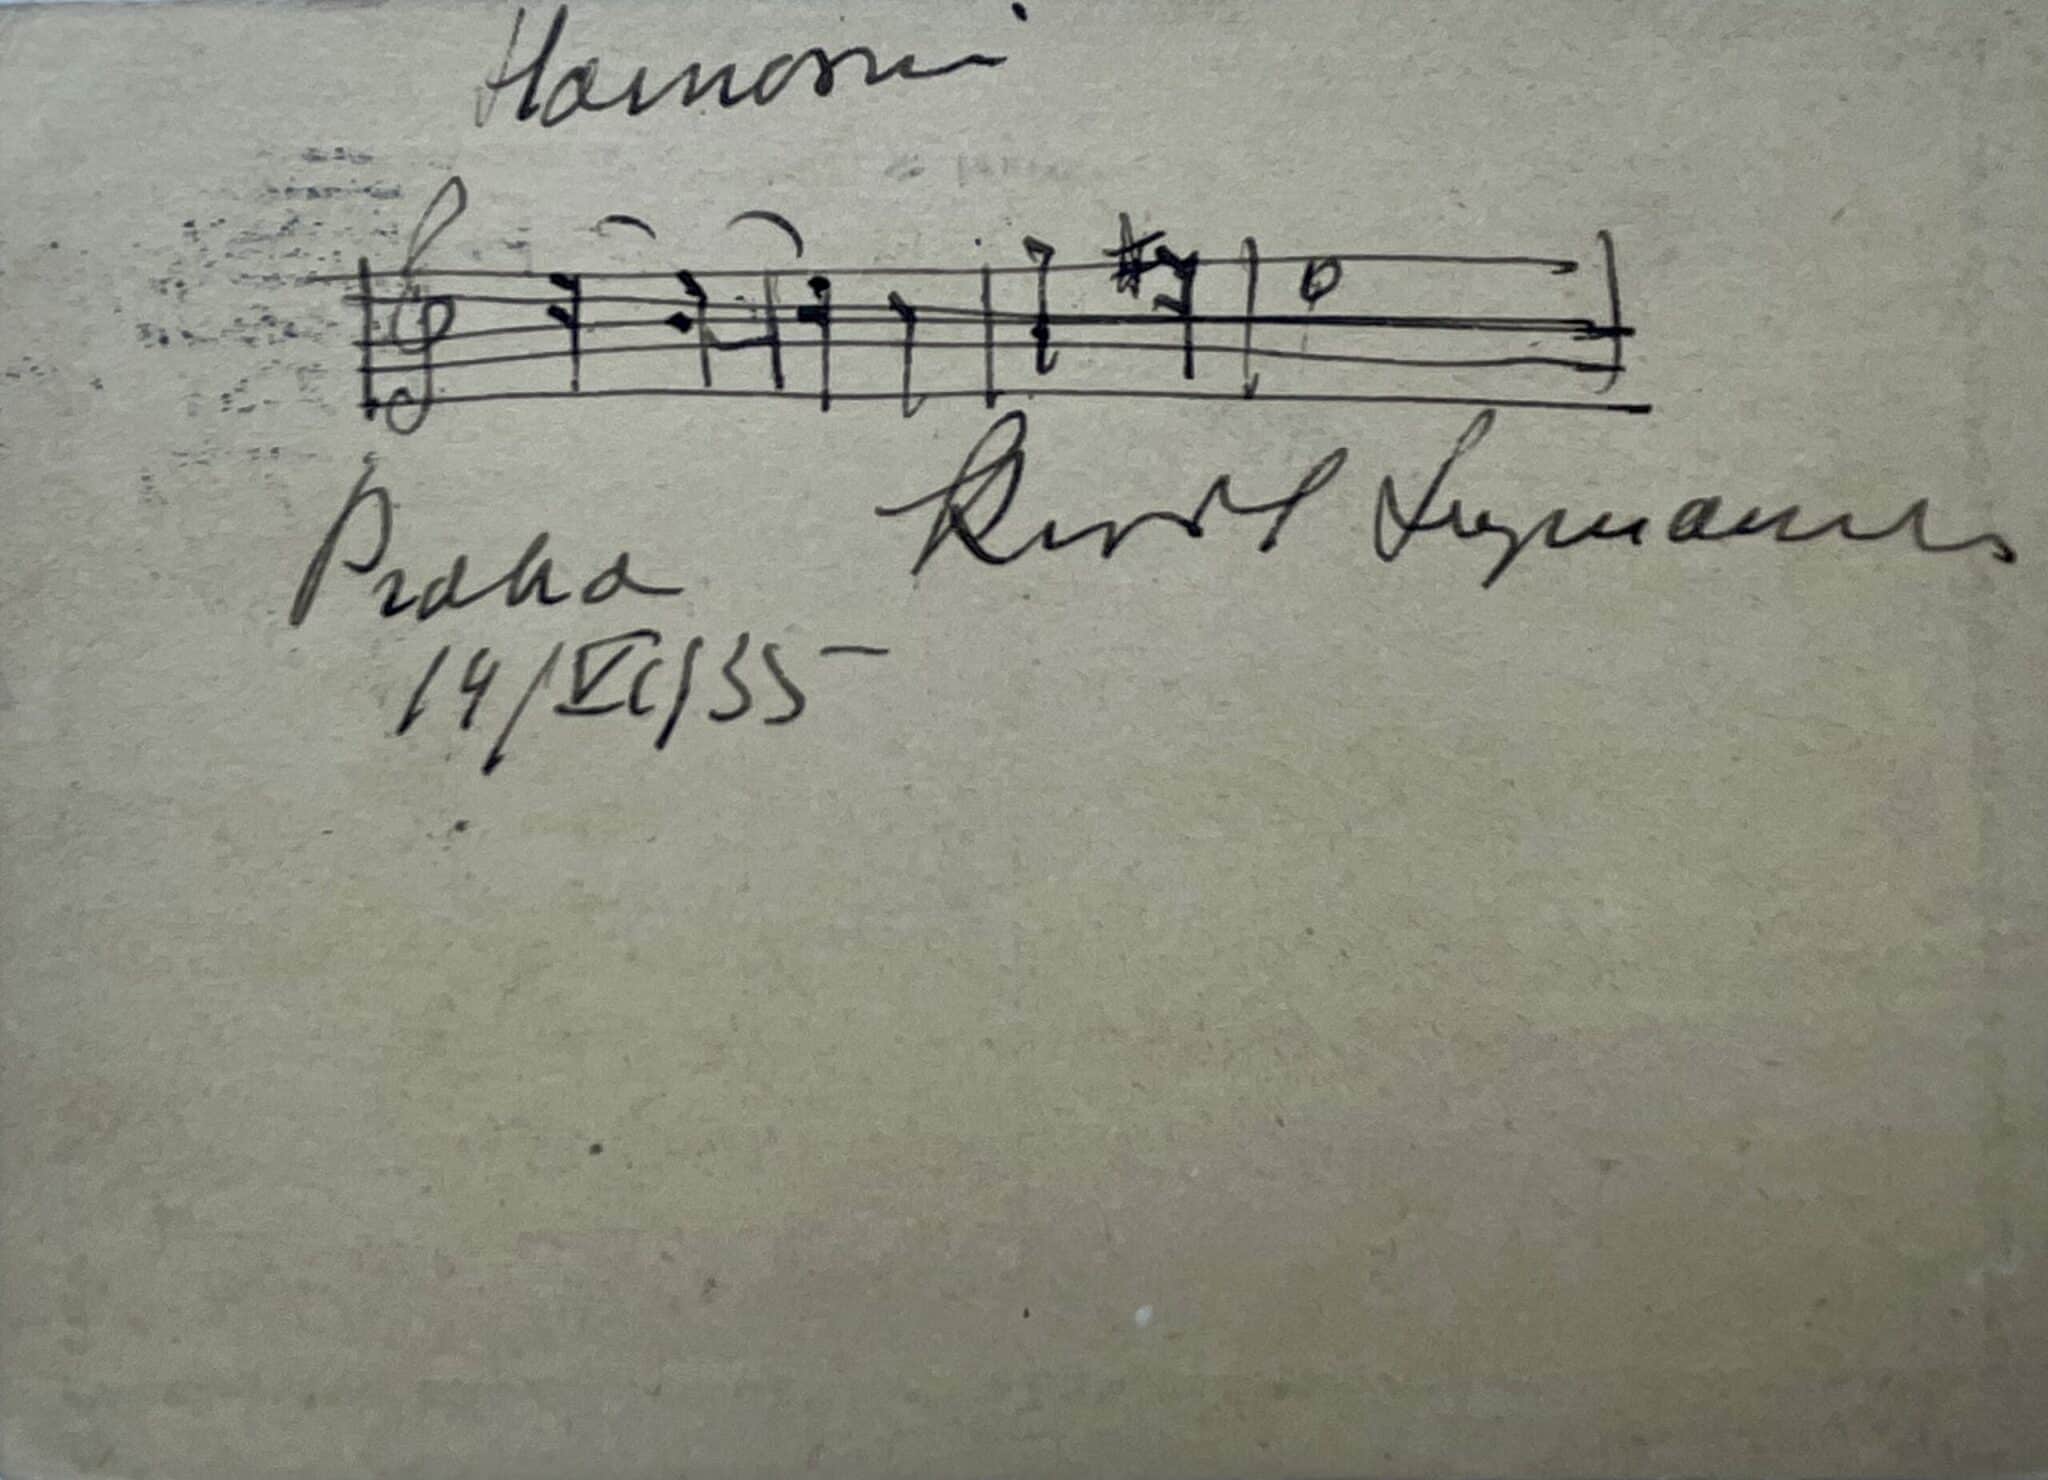 Harnasie
Praha
Karol Szymanowski
14/VI/35